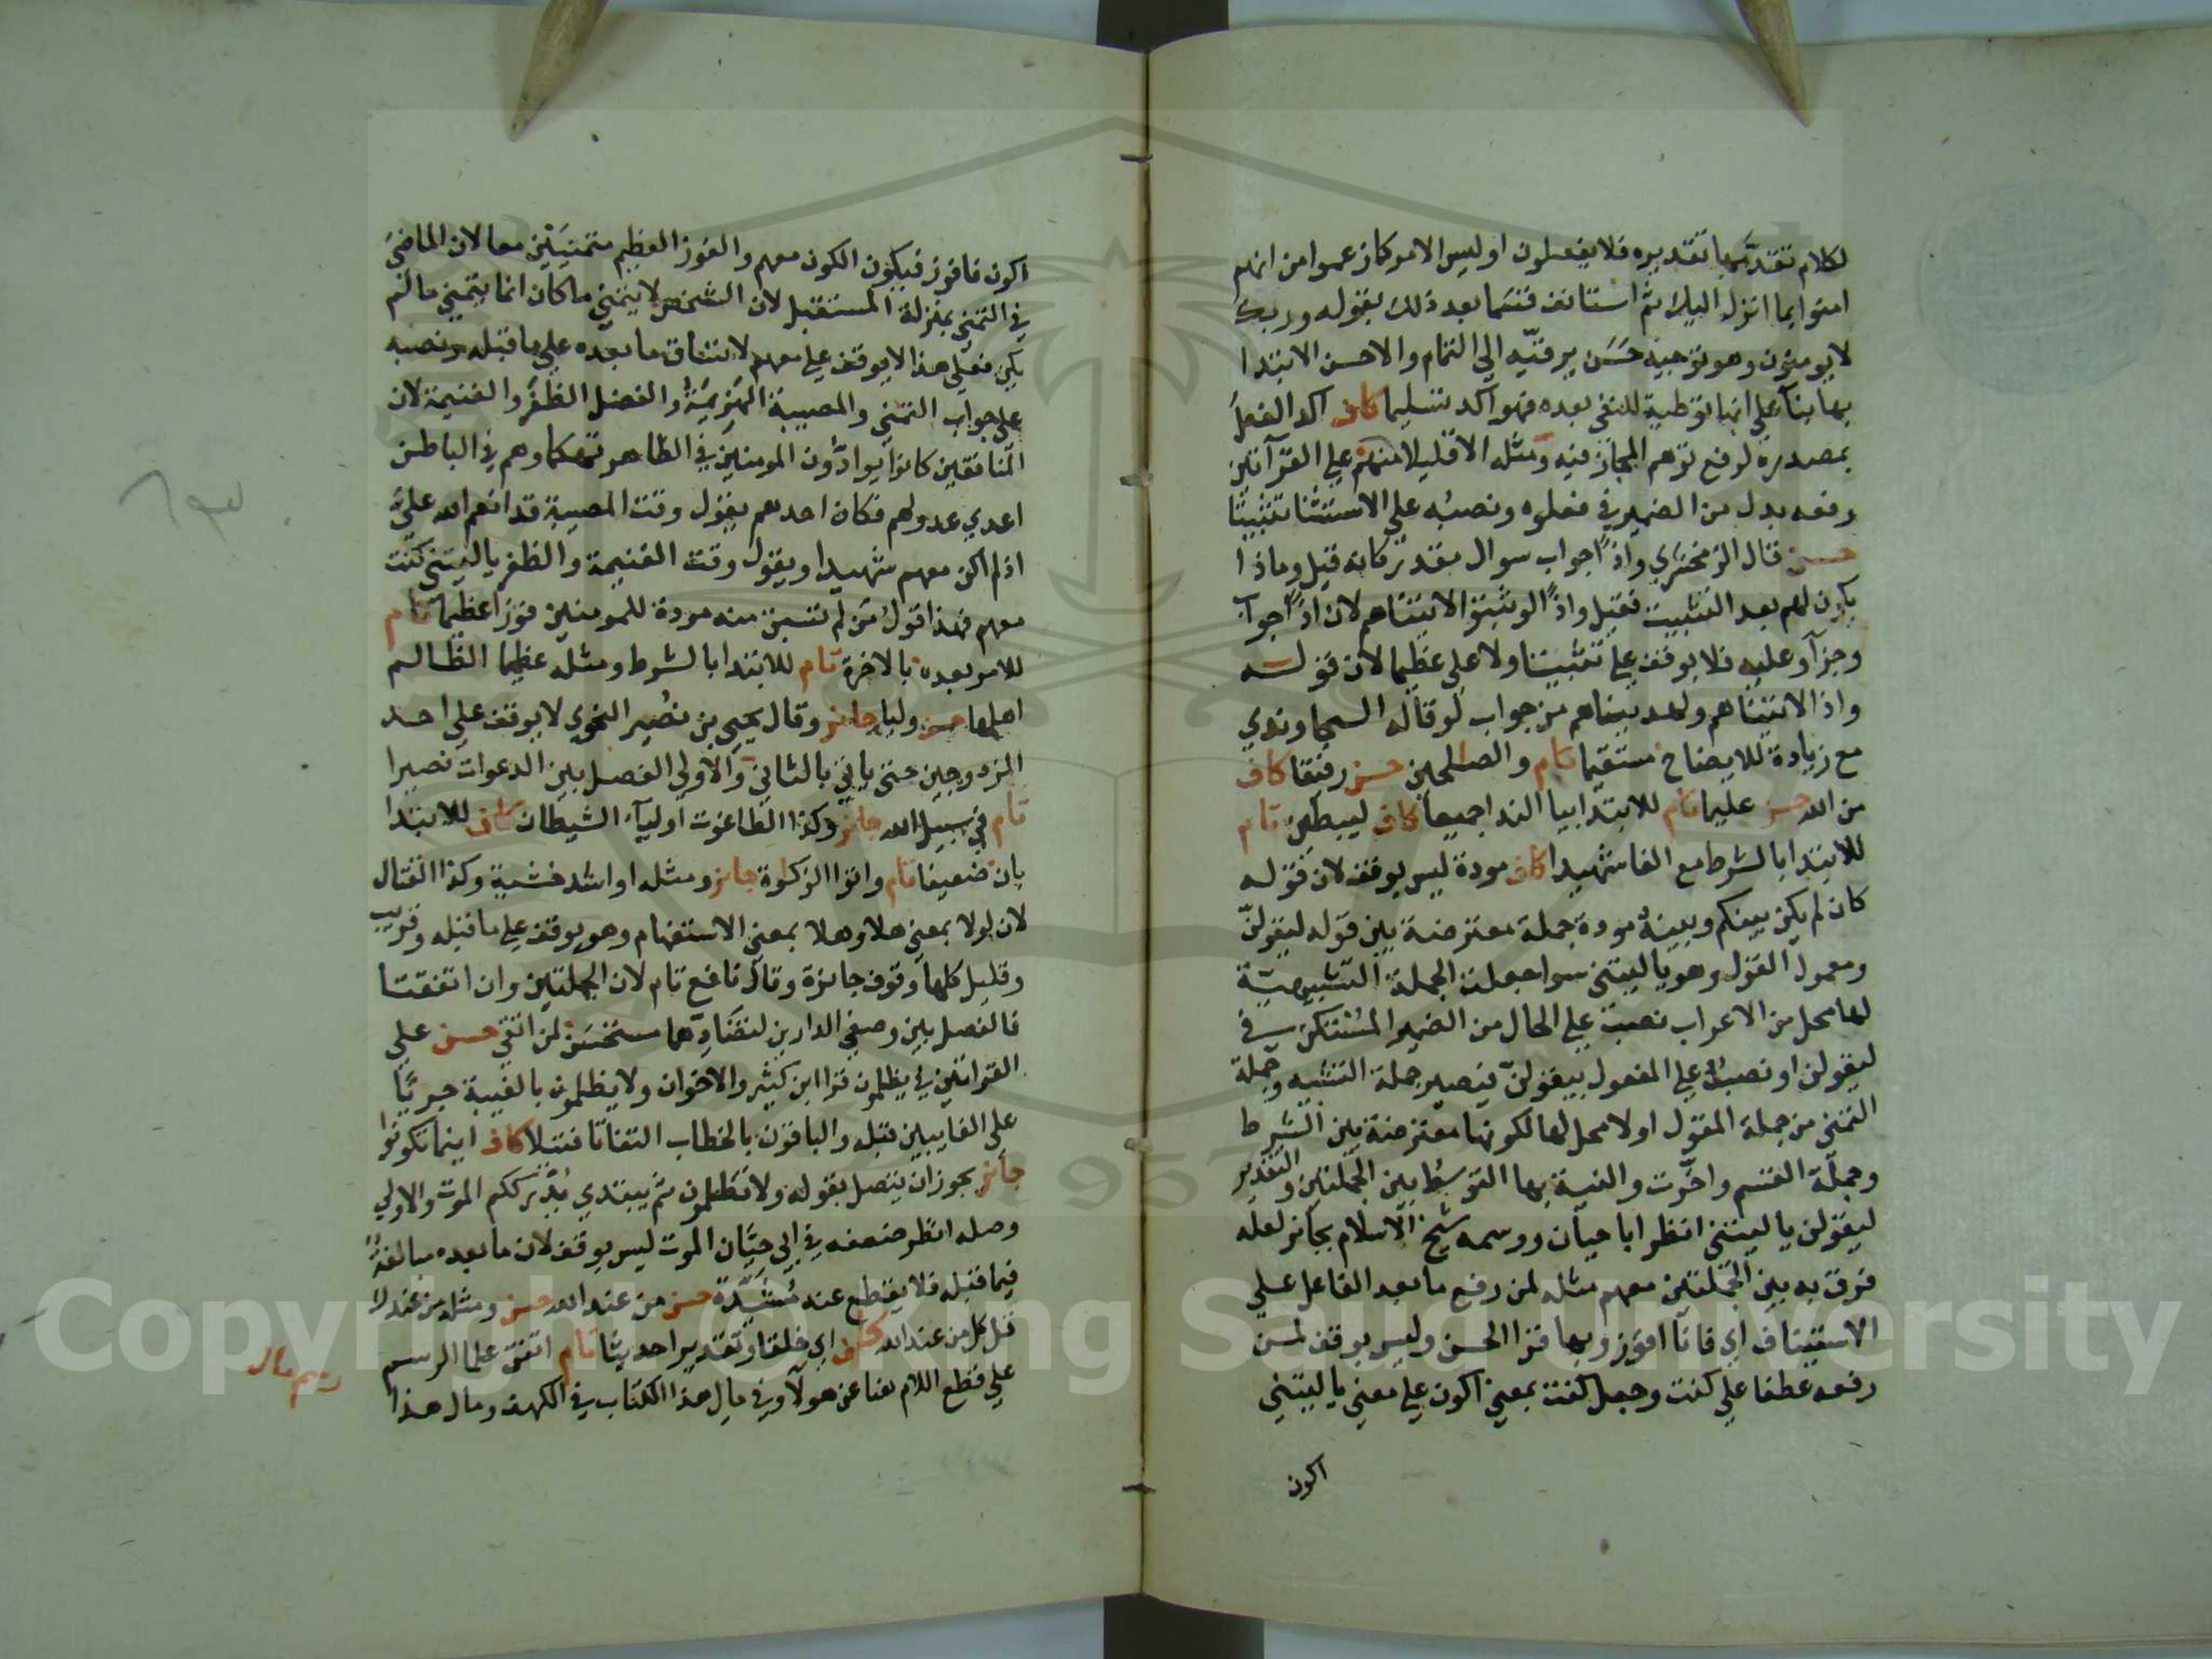 لكلام تقدمها تقديره فلا يفعلون او ليس الامر كما زعموا من انهم
امنوا بما انزل اليك ثم استانف قسما بعد ذلك بقوله وربك
لا يومنون وهو توجيه حسن يرقيه الي التمام والاحسن الابتدا
بها بنآء علي انها توطية للنفي بعده فهو اكد تسليما كاف اكد الفعل
بمصدره لرفع توهم المجاز فيه ومثله الا قليلا منهم علي القرآتين
رفعه بدل من الضمير في فعلوه ونصبه علي الاستثنا تثبيتا
حسن قال الزمخشري واذًا جواب سوال مقدر كانه قيل وماذا
يكون لهم بعد التثبيت فقيل واذًا لو ثبتوا لاتيناهم لان اذًا جواب
وجزآ وعليه فلا يوقف علي تثبيتا ولا علي عظيما لان قوله
واذا لاتيناهم ولهديناهم من جواب لو قاله السجاوندي
مع زيادة للايضاح مستقيما تام والصالحين حسن رفيقا كاف
من الله حسن عليما تام للابتدا بيا الندا جميعا كاف ليبطين تام
للابتدا بالشرط مع الفا شهيدا كاف مودة ليس بوقف لان قوله
كان لم يكن بينكم وبينه مودة جملة معترضة بين قوله ليقولن
ومعمول القول وهو يا ليتني سوا جعلت الجملة التشبيهية
لها محل من الاعراب نصب علي الحال من الضمير المستتر في
ليقولن او نصب علي المفعول بيقولن فيصير جملة التشبيه وجملة
التمني من جملة المقول او لا محل لها لكونها معترضة بين الشرط
وجملة القسم واخرت والنية بها التوسط بين الجملتين والتقدير
ليقولن يا ليتني انظر ابا حيان ووسمه شيخ الاسلام بجائز لعله
فرق به بين الجملتين معهم مثله لمن رفع ما بعد الفا علي
الاستيناف اي فانا افوز وبها قرا الحسن وليس بوقف لمن
رفعه عطفا علي كنت وجعل كنت بمعني اكون علي معني يا ليتني
اكون
اكون فافوز فيكون الكون معهم والفوز العظيم متمنيين معا لان الماضي
في التمني بمنزلة المستقبل لان الشخص لا يتمني ما كان انما يتمني ما لم
يكن فعلي هذا لا يوقف علي معهم لاتساق ما بعده علي ما قبله ونصبه
علي جواب التمني والمصيبة الهزيمة والفضل الظفر والغنيمة لان
المنافقين كانوا يوادون المومنين في الظاهر تهكما وهم في الباطن
اعدي عدو لهم فكان احدهم يقول وقت المصيبة قد انعم الله علي
اذ لم اكن معهم شهيدا ويقول وقت الغنيمة والظفر يا ليتني كنت
معهم فهذا قول من لم تسبق منه مودة للمومنين فوزا عظيما تام
للامر بعده بالاخرة تام للابتدا بالشرط ومثله عظيما الظالم
اهلها حسن وليا جائز وقال يحيي بن نصير النحوي لا يوقف علي احد
المزدوجين حتي ياتي بالثاني والاولي الفصل بين الدعوات نصيرا
تام في سبيل الله جائز وكذا الطاغوت اوليآء الشيطان كاف للابتدا
بان ضعيفا تام واتوا الزكوة جائز ومثله او اشد خشية وكذا القتال
لان لولا بمعني هلا وهلا بمعني الاستفهام وهو يوقف علي ما قبله وقريب
وقليل كلها وقوف جائزة وقال نافع تام لان الجملتين وان اتفقتا
فالفصل بين وصفي الدارين لتضادهما مستحسن لمن اتقي حسن علي
القراتين في يظلمون قرا ابن كثير والاخوان ولا يظلمون بالغيبة جريًا
علي الغايبين قبله والباقون بالخطاب التفاتا فتيلا كاف اينما تكونوا
جائز يجوز ان يتصل بقوله ولا تظلمون ثم يبتدي يدرككم الموت والاولي
وصله انظر ضعفه في ابي حيان الموت ليس بوقف لان ما بعده مبالغة
فيما قبله فلا يقطع عنه مشيدة حسن من عند الله حسن ومثله من عندك
قل كل من عند الله كاف اي خلقا وتقديرا حديثا تام اتفق علما الرسم
علي قطع اللام هنا عن هولآ وفي مال هذا الكتاب في الكهف ومال هذا
رسم مال